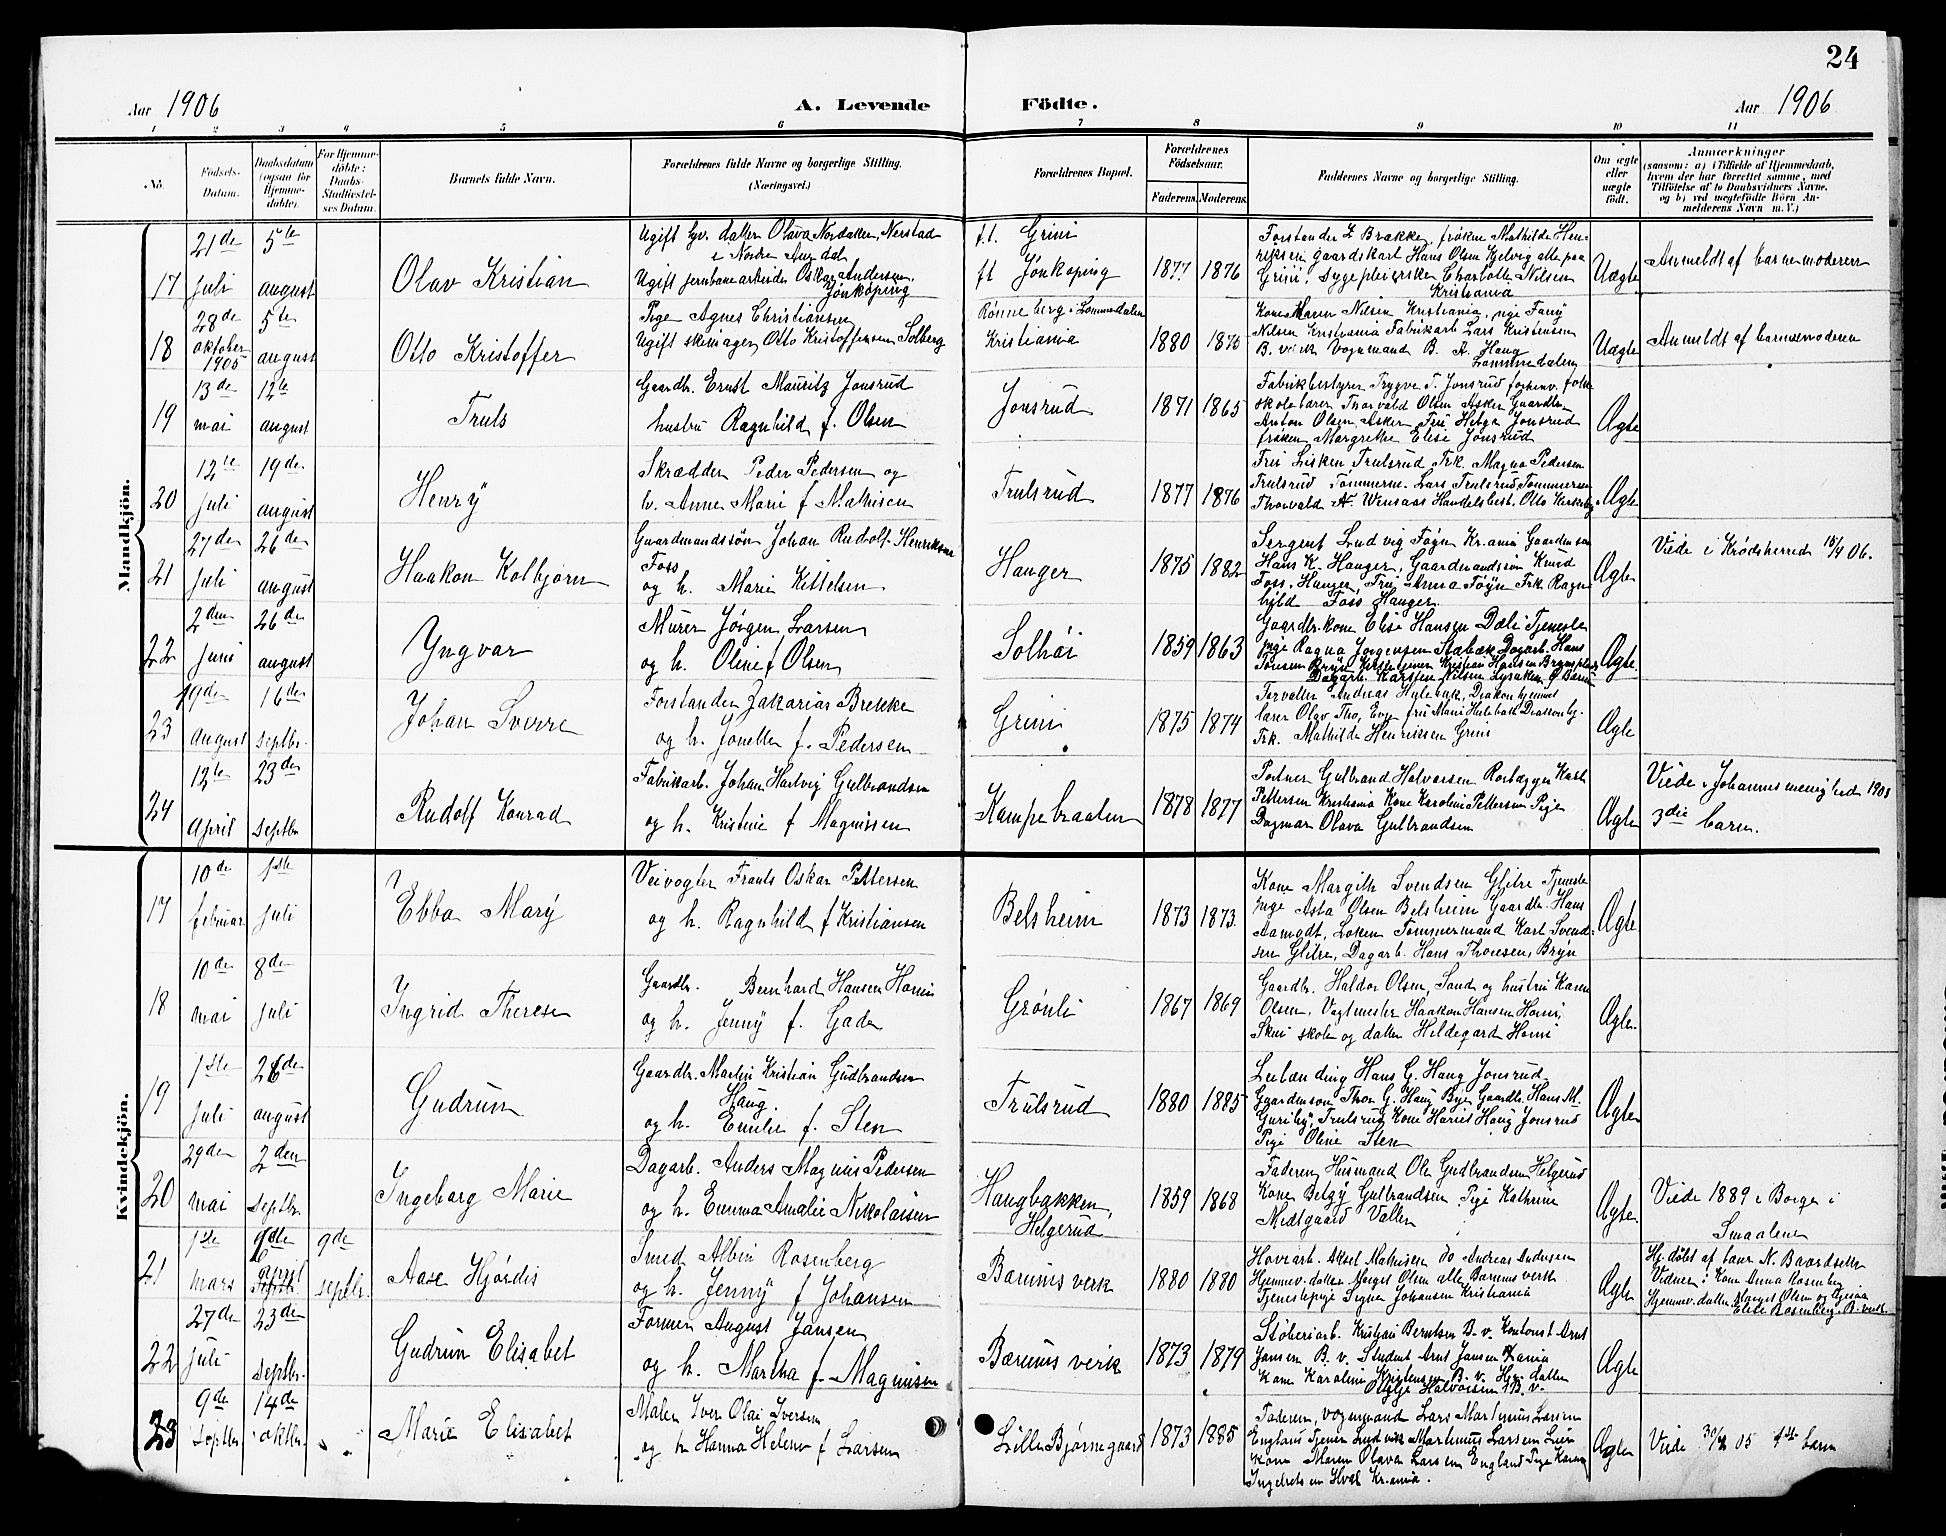 24
Aar 1906 A. Levende Födte. Aar 1906
1 2 3 4 5 6 7 8 9 10 11
No.
Födsels-Datum.
Daabsdatum (ogsaa for Hjemme-döbte).
For Hjemme-döbte: Daabs-Stadfæstel-ses Datum.
Barnets fulde Navn.
Forældrenes fulde Navne og borgerlige Stilling.
(Næringsvei.)
Forældrenes Bopæl.
Forældrenes Födselsaar.
Faderens Moderens
Faddernes Navne og borgerlige Stilling.
Om ægte eller uægte födt.
Anmærkninger
(saasom: a) i Tilfælde af Hjemmedaab,
hvem der har forrettet samme, med
Tilföielse af to Daabsvidners Navne,
og b) ved uægtefödte Börn An-
melderens Navn m. V.)
Mandkjön.
17 21de juli 5te august
Olav Kristian
Ugift gv. datter Olava Nordalen, Nerstad
i Nordre Aurdal
Ugift jernbanearbeider Oskar Andersen,
Jönköping
f.t. Grini
ft Jönköping
1877 1876
Forstander Z Brække, frøken Mathilde Hen-
riksen gaardskarl Hans Olsen Hjelvig alle paa
Grini, Sygepleierske Charlotte Nilsen
Kristiania
Uægte
Anmeldt af barnemoderen
18 28de oktober 1905 5te august
Otto Kristoffer
Pige Agnes Christiansen
Ugift skomager Otto Kristoffersen Solberg
Rønneberg i Lommedalen
Kristiania
1880 1875
Kone Maren Nilsen Kristiania, pige Fanny
Nilsen Kristiania Fabrikarb Lars Kristensen
B. verk Vognmand B. A. Haug
Lommedalen
Uægte
Anmeldt af barnemoderen
19 13de mai 12te august
Truls
Gaardbr. Ernst Mauritz Jonsrud
hustru Ragnhild f. Olsen
Jonsrud
1871 1865
Fabrikbestyrer Trygve T. Jonsrud forhenv. folke
skolelærer Thorvald Olsen Asker Gaardbr.
Anton Olsen, Asker Fru Helga Jonsrud
frøken Margrethe Elise Jonsrud
Ægte
20 12te juli 19de august
Henry
Skrædder Peder Pedersen og
h. Anne Marie f Mathisen
Trulsrud
1877 1876
Fru Lisken Trulsrud Frk. Magna Pedersen
Trulsrud Tømmerm. Lars Trulsrud Tømmerm
Thorvald A. Wensaas Handelsbest. Otto Kirkeby
Ægte
21 27de juli 26de august
Haakon Kolbjørn
Gaardmandssøn Johan Rudolf Henriksen
Foss
og h. Marie Kittelsen
Hauger
1875 1882
Sergent Ludvig Føyn Kr.ania Gaardmsøn
Hans K. Hauger, Gaardmandssøn Knud
Foss, Hauger Fru Anna Føyn Frk Ragn
hild Foss Hauger.
Ægte
Viede i Krødsherred 15/4 06.
22 2den juni 26de august
Yngvar
Murer Jørgen Larsen
og h. Oline f Olsen
Solhöi
1859 1863
Gaardbr.kone Elise Hansen Dæli Tjeneste
pige Ragna Jørgensen Stabæk Dagarb. Hans
Dagarb. Karsten Nilsen
Ægte.
23 19de august 16de septbr.
Johan Sverre
Forstander Zakarias Brekke
og h. Jonette f. Pedersen
Grini
1875 1874
Forvalter Andreas Hulebak, Diakonhjemmet
lærer Olav Tho, Evje fru Marie Hulebak Diakonhj.
Frk. Mathilde Henriksen Grini
Ægte
24 12te April 23de Septbr
Rudolf Konrad
Fabrikarb. Johan Hartvig Gulbrandsen
og h. Kristine f Magnussen
Kampebraaten
1878 1877
Portner Gulbrand Halvorsen Rørlægger Karl
Pettersen Kristiania Kone Karoline Pettersen Pige
Dagmar Olava Gulbrandsen
Ægte
Viede i Johannes menighed 1903
3die barn.
Kvindekjön.
17 10de februar 1ste juli
Ebba Mary
Veivogter Frants Oskar Pettersen
og h. Ragnhild f Kristiansen
Belsheim
1873 1873.
Kone Margith Svendsen Glitre Tjeneste
pige Asta Olsen Belsheim Gaardbr. Hans
Aamodt, Løken Tømmermand Karl Svend-
sen Glitre, Dagarb. Hans Thoresen, Bryn
Ægte
18 10de mai 8de juli
Ingrid Therese
Gaardbr. Bernhard Hansen Horni
og h. Jenny f. Gade
Grønli
1867 1869
Gaardbr. Haldor Olsen, Sand og hustru Karen
Olsen, Vagtmester Haakon Hansen Horni,
Skui skole og datter Hildegard Horni
Ægte.
19 1ste juli 26de august
Gudrun
Gaardbr. Martin Kristian Gudbrandsen
Haug.
og h. Emilie f. Sten
Trulsrud
1880 1885
Leilænding Hans G. Haug Jonsrud
Gaardmsøn Thor G. Haug Bye Gaardbr. Hans M.
Guriby, Trulsrud Kone Haug Jonsrud
Pige Oline Sten
Ægte
20 29de mai 2den Septbr.
Ingeborg Marie
Dagarb. Anders Magnus Pedersen
og h. Emma Amalie Nikolaisen
Haugbakken,
Helgerud
1859 1868
Faderen, Husmand Ole Gudbrandsen Helgerud
Kone Betzy Gulbrandsen Pige Kathrine
Medtgaard Vallen
Ægte.
Viede 1889 i Borge i
Smaalene
21 1ste mars april 9de septbr.
Aase Hjørdis
Smed Albin Rosenberg
og h. Jenny f Johansen
Bærums verk
1880 1880
Hoveiarb. Aksel Mathisen do Andreas Andersen
Hjemmev. datter Marget Olsen alle Bærums verk
Tjenestepige Signe Johansen Kristiania
Ægte
Hj. døbt af lærer N. Baardseth
Vidner: Kone Anna Rosenberg
Hjemmev. datter Marget Olsen og
Elise Rosenberg, B. verk
22 27de juli 23de Septbr.
Gudrun Elisabet
Former August Jansen
og h. Martha f. Magnusen
Bærums verk
1873 1879
Støberiarb. Kristian Berntsen B. v. Kontorist Arnt
Jansen B. v. Student Arnt Jansen Xania
Kone Karoline Kristensen B. v. Hjv. datter
Halvorsen B. v.
Ægte
23 9de Septbr. 14de oktbr.
Marie Elisabet
Maler Iver Olai Iversen
og h Hanna Helene f Larsen
Lille Bjørnegaard
1873 1885
Faderen, vognmand Lars Martinius Larsen
England Tjener Ludvik Martinius Larsen Lier
Kone Maren Olava Larsen England Pige Karen
Ingebretsen Hval Kr.ania.
Ægte
Viede 05 1ste barn